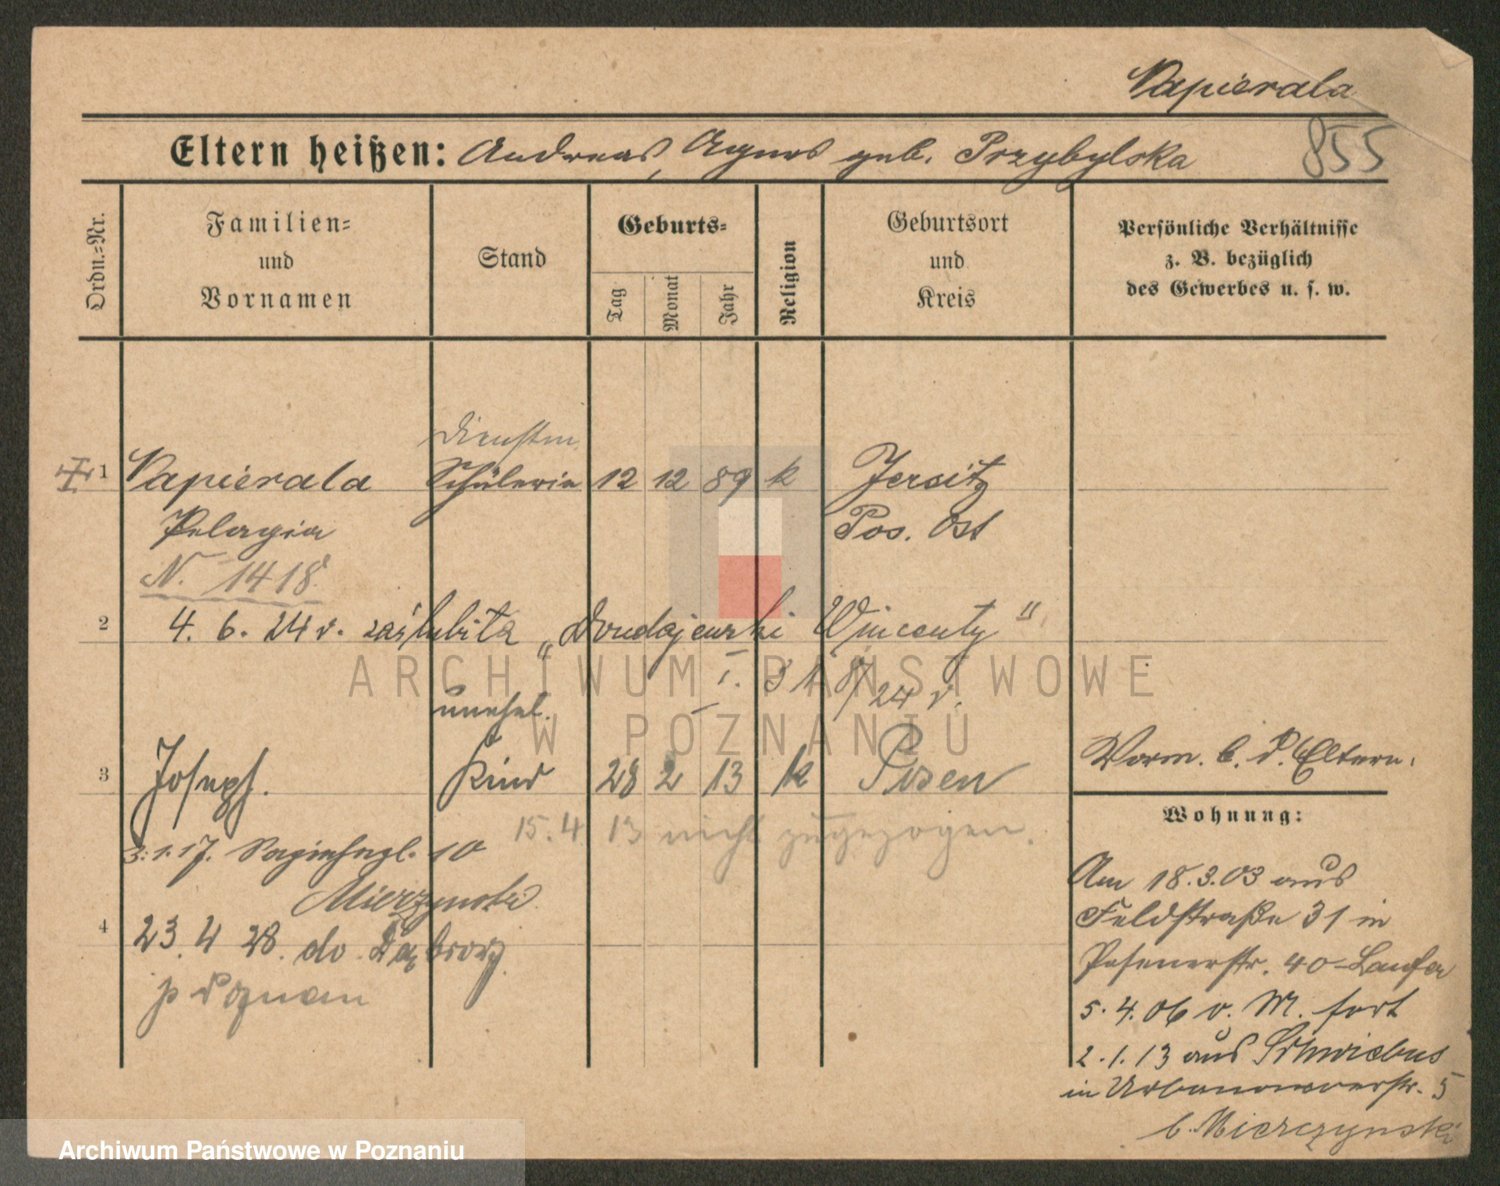 Papierala
855
Eltern heißen: Andreas, Agnes geb. Przybylska
Ordn.-Nr.
Familien-
und
Vornamen
Stand
Geburts-
Tag
Monat
Jahr
Religion
Geburtsort
und
Kreis
Persönliche Verhältnisse
z. B. bezüglich
des Gewerbes u. s. w.
Dienstm.
1 Papierala Schülerin 12 12 89 k Jersitz
Pelagia Pos. Ost
N. 1418
2 4. 6. 24 r. zaślubiła „Dondajewski Wincenty"
I. 31 8/24 r.
unehel.
3 Joseph. Kind 28 2 13 k Posen
15. 4 13 nicht zugezogen.
3.1.17. 10
Mierzynski
4 23. 4 28. do Dąbrowy
p Poznan
Vorm. b. d. Eltern.
Wohnung:
Am 18.3.03 aus
Feldstraße 31 in
Posenerstr. 40
5.4.06 v. M. fort
2.1.13 aus Schwiebus
in Urbanowoerstr. 5
b. Mierczynski
ARCHIWUM PAŃSTWOWE
W POZNANIU
Archiwum Państwowe w Poznaniu